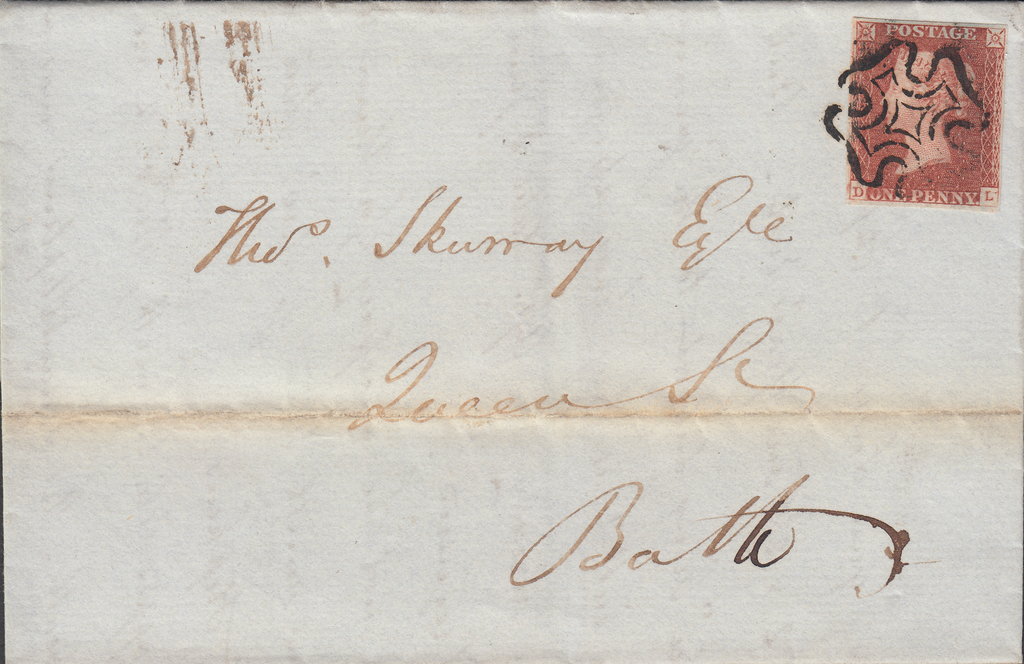 POSTAGE
D ONE PENNY L
Thos. Skurray Esqre
Queen St
Bath